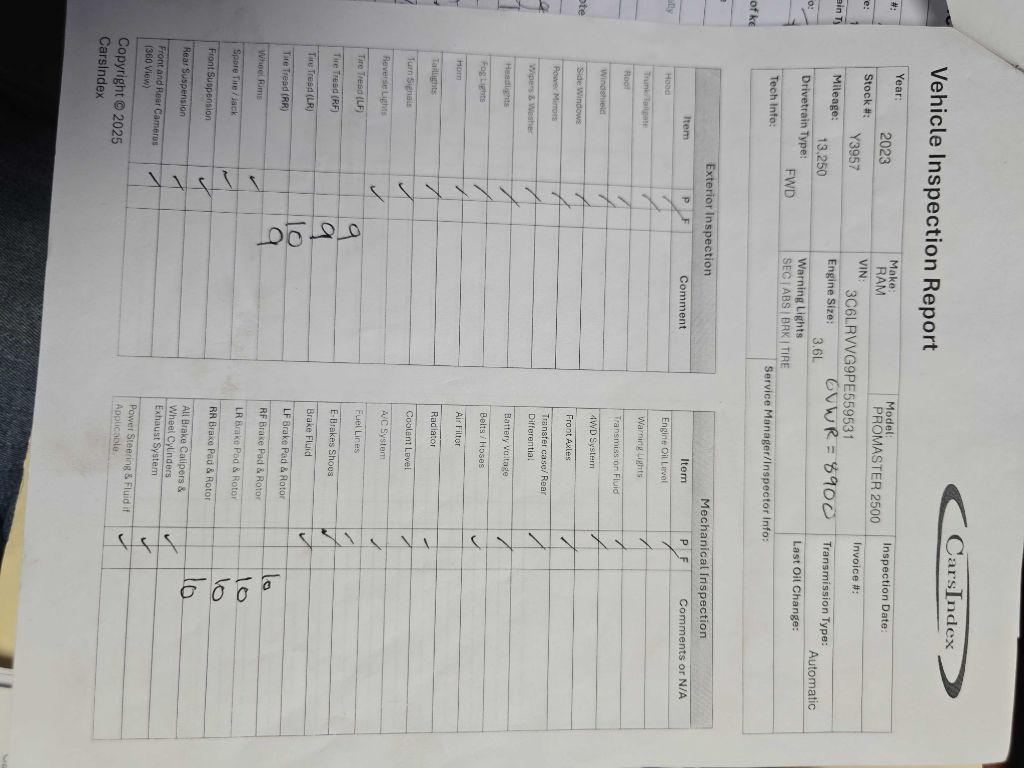 Vehicle Inspection Report
CARSINDEX
Year: 2023
Make: RAM
Model: PROMASTER 2500
Inspection Date:
Stock #: Y3957
VIN: 3C6LRVVG9PE559531
Invoice #:
Mileage: 13,250
Engine Size: 3.6L
GVWR = 8900
Transmission Type: Automatic
Drivetrain Type: FWD
Warning Lights
SEC | ABS | BRK | TIRE
Last Oil Change:
Tech Info:
Service Manager/Inspector Info:
Exterior Inspection
Item P F Comment
Hood ✓
Trunk/Tailgate ✓
Roof ✓
Windshield ✓
Side Windows ✓
Power Mirrors ✓
Wipers & Washer ✓
Headlights ✓
Fog Lights ✓
Horn ✓
Taillights ✓
Turn Signals ✓
Reverse Lights ✓
Tire Tread (LF) 9
Tire Tread (RF) 9
Tire Tread (LR) 10
Tire Tread (RR) 9
Wheel Rims ✓
Spare Tire / Jack ✓
Front Suspension ✓
Rear Suspension ✓
Front and Rear Cameras
(360 View) ✓
Mechanical Inspection
Item P F Comments or N/A
Engine Oil Level ✓
Warning Lights ✓
Transmission Fluid ✓
4WD System ✓
Front Axles ✓
Transfer case/ Rear
Differential ✓
Battery Voltage ✓
Belts / Hoses ✓
Air Filter
Radiator ✓
Coolant Level ✓
A/C System ✓
Fuel Lines ✓
E-Brakes Shoes ✓
Brake Fluid ✓
LF Brake Pad & Rotor 10
RF Brake Pad & Rotor 10
LR Brake Pad & Rotor 10
RR Brake Pad & Rotor 10
All Brake Calipers &
Wheel Cylinders ✓
Exhaust System ✓
Power Steering & Fluid if
Applicable. ✓
Copyright © 2025
CarsIndex